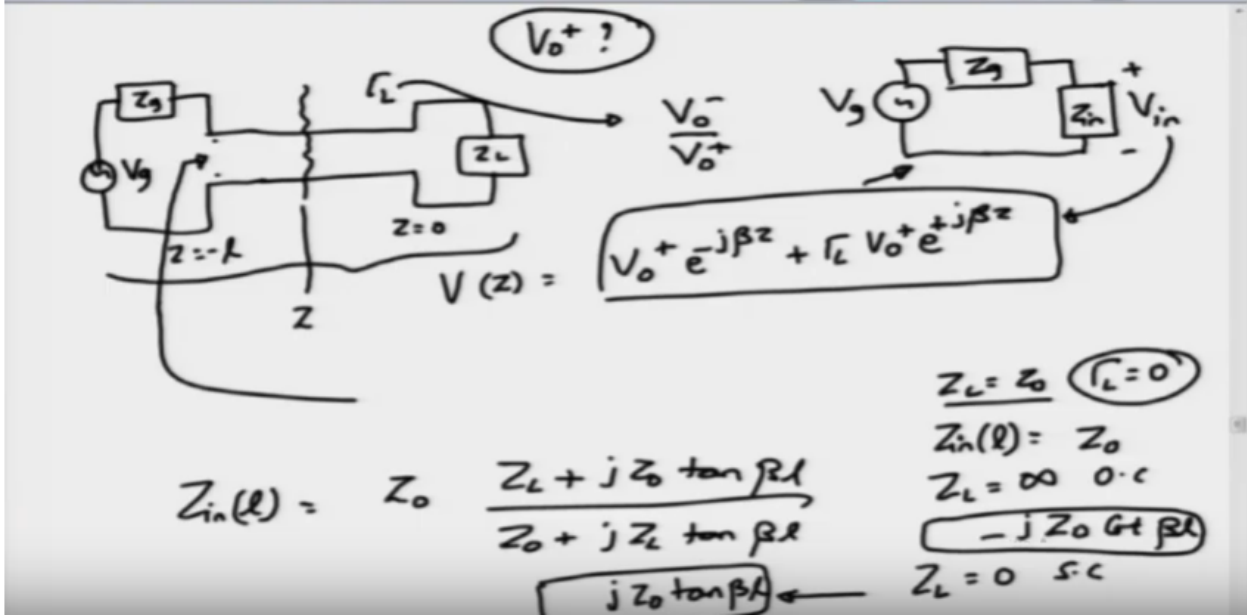 V₀⁺ ?
Zg
Vg
Γ_L
Z_L
z = -l
z = 0
z
V₀⁻ / V₀⁺
Vg
Zg
Zin
+
Vin
-
V(z) = V₀⁺ e^{-jβz} + Γ_L V₀⁺ e^{+jβz}
Z_L = Z₀ Γ_L = 0
Zin(l) = Z₀
Z_L = ∞ o.c
- j Z₀ Cot βl
Z_L = 0 s.c
Zin(l) = Z₀ (Z_L + j Z₀ tan βl) / (Z₀ + j Z_L tan βl)
j Z₀ tan βl